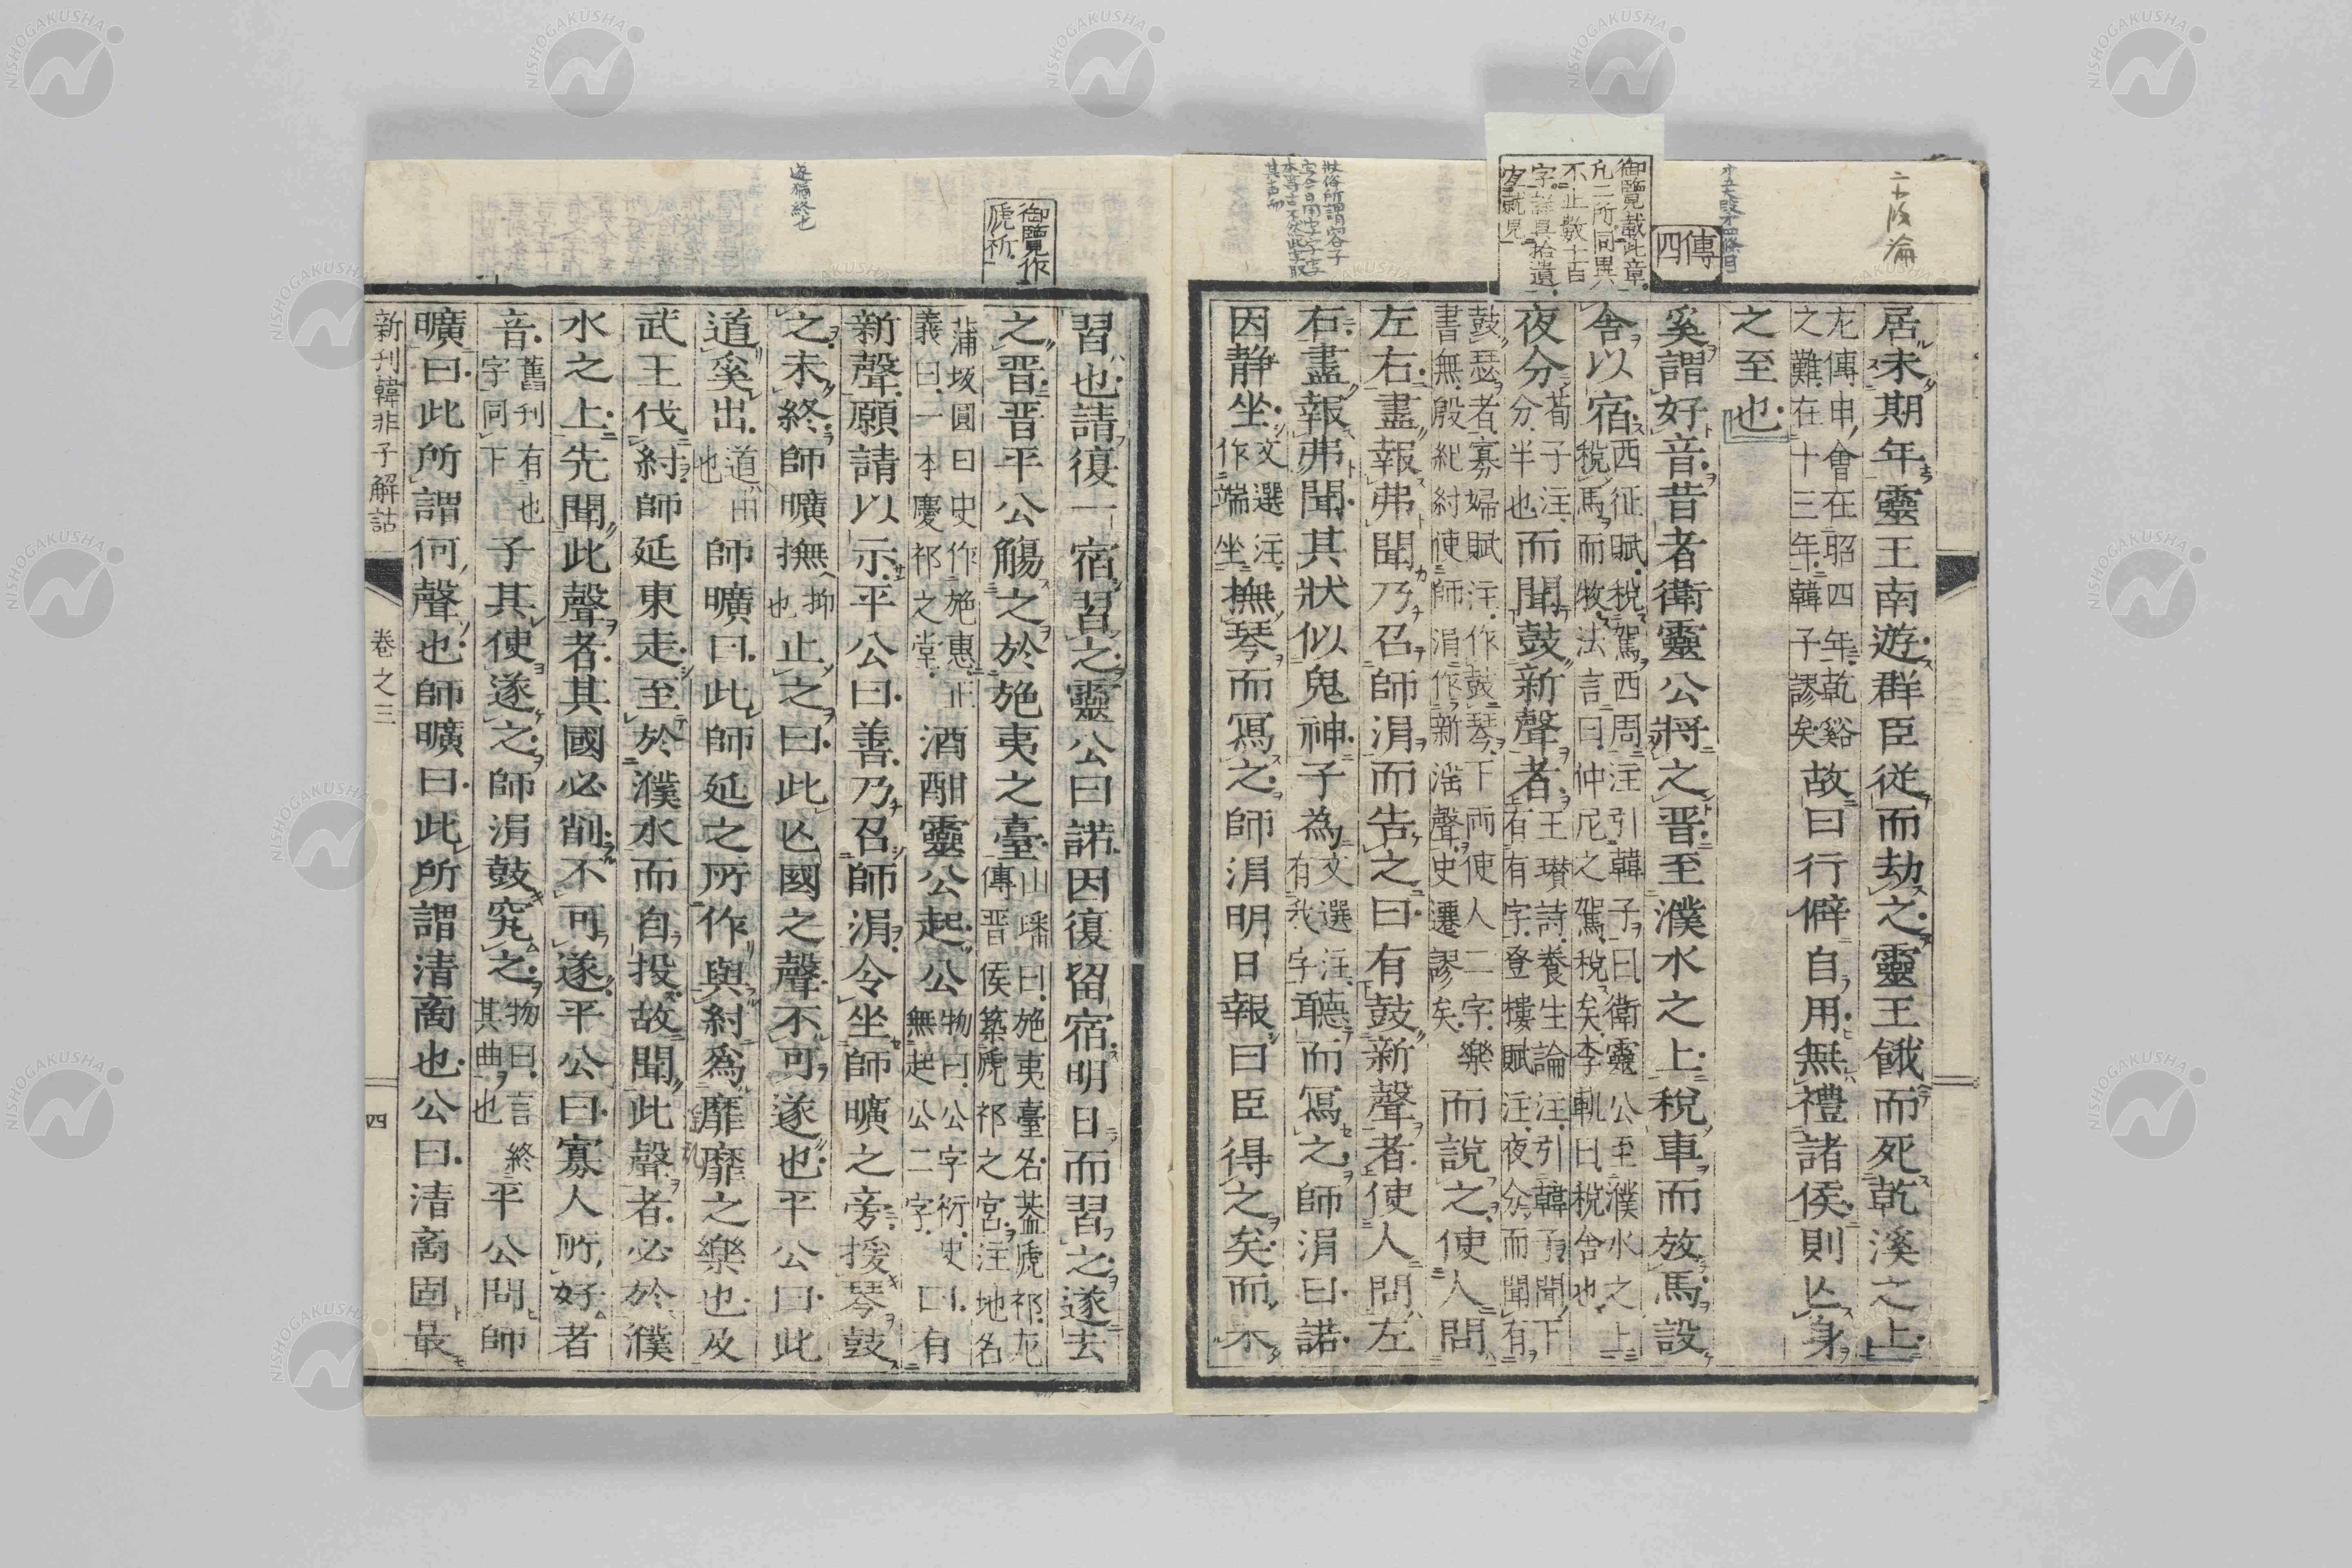 居未期年靈王南遊群臣從而劫之靈王餓而死乾溪之上
左傳申會在昭四年乾谿之難在十三年韓子謬矣故曰行僻自用無禮諸侯則亡身
之至也
奚謂好音昔者衛靈公將之晋至濮水之上稅車而放馬設
舍以宿西征賦稅駕西周注引韓子曰衛靈公至濮水之上稅馬而牧法言曰仲尼之駕稅矣李軌曰稅舍也
夜分荀子注分半也而聞鼓新聲者王瓚詩養生論注引韓子聞下有有字登樓賦注夜分而聞有
鼓瑟者寡婦賦注作鼓琴下兩使人二字樂書無殷紂使師涓作新淫聲史遷謬矣而說之使人問
左右盡報弗聞乃召師涓而告之曰有鼓新聲者使人問左
右盡報弗聞其狀似鬼神子為文選注有我字聽而寫之師涓曰諾
因静坐文選注作端坐撫琴而寫之師涓明日報曰臣得之矣而不
習也請復一宿習之靈公曰諾因復留宿明日而習之遂去
之晋晋平公觴之於施夷之臺山璠曰施夷臺名葢虒祁左傳晋侯築虒祁之宮注地名
蒲坂圓曰史作施惠正義曰一本慶祁之堂酒酣靈公起公物曰公字衍史無起公二字曰有
新聲願請以示平公曰善乃召師涓令坐師曠之旁援琴鼓
之未終師曠撫抑也止之曰此亡國之聲不可遂也平公曰此
道奚出道由也師曠曰此師延之所作與紂爲靡靡之樂也及
武王伐紂師延東走至於濮水而自投故聞此聲者必於濮
水之上先聞此聲者其國必削不可遂平公曰寡人所好者
音舊刊有也字同下子其使遂之師涓鼓究之物曰言終其曲也平公問師
曠曰此所謂何聲也師曠曰此所謂清商也公曰清商固最
新刊韓非子解詁
卷之三
四
傳四
御覽載此章
凡二所同異
不止數十百
字詳具拾遺
宜就見
御覽作
虒祈
遂猶終也
NISHOGAKUSHA